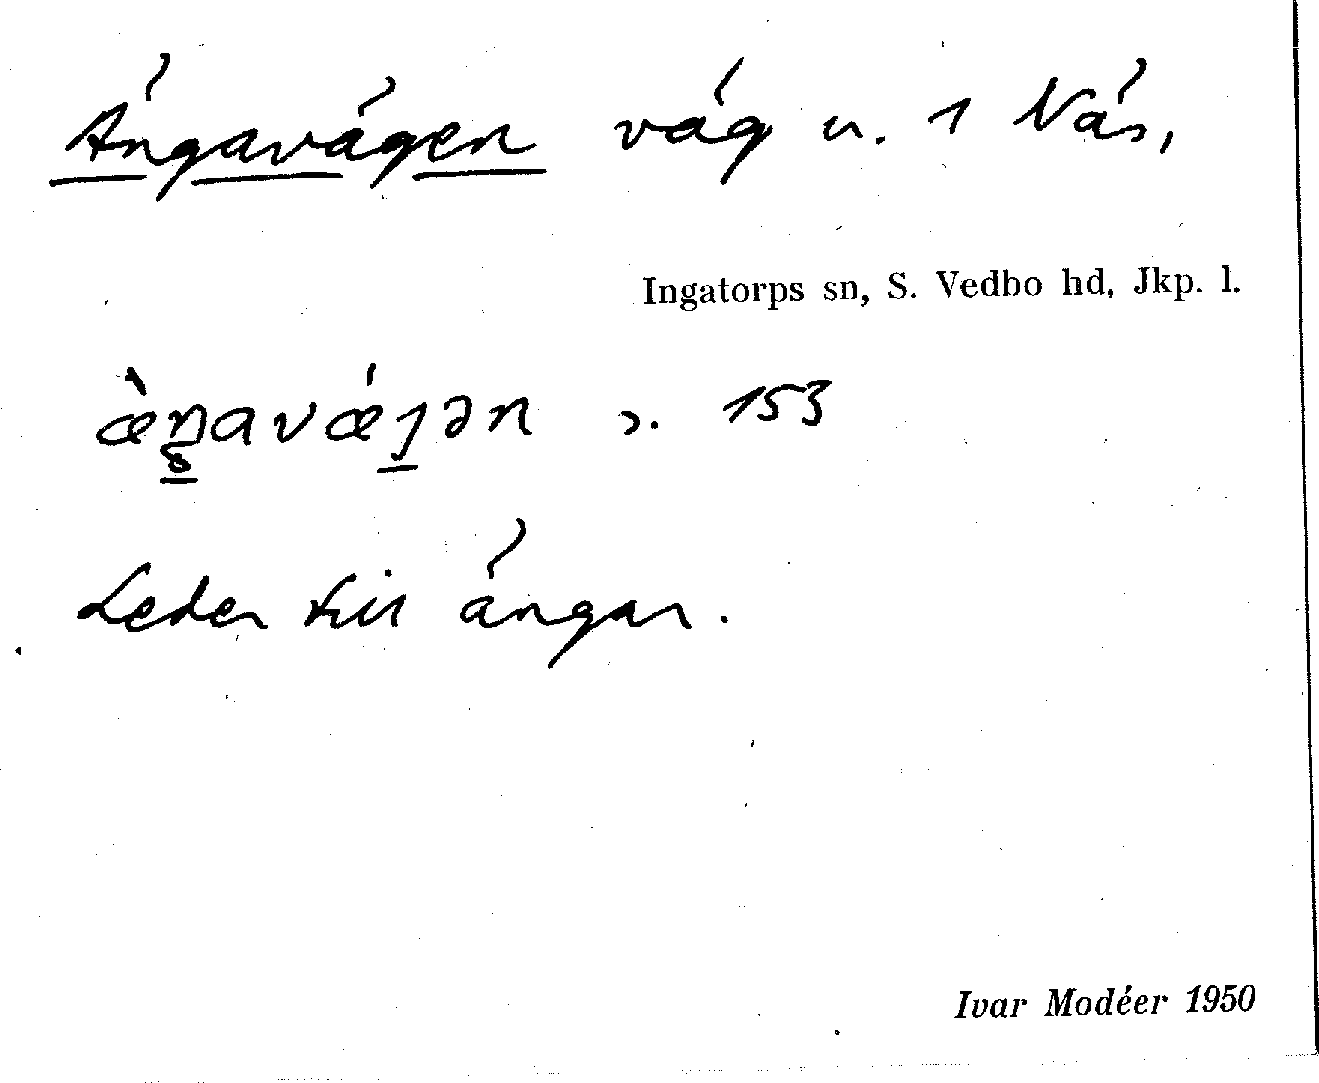 Ängavägen väg u. 1 Näs,
Ingatorps sn, S. Vedbo hd, Jkp. l.
æ̀ŋavǽȷən 153
Leder till ängar.
Ivar Modéer 1950